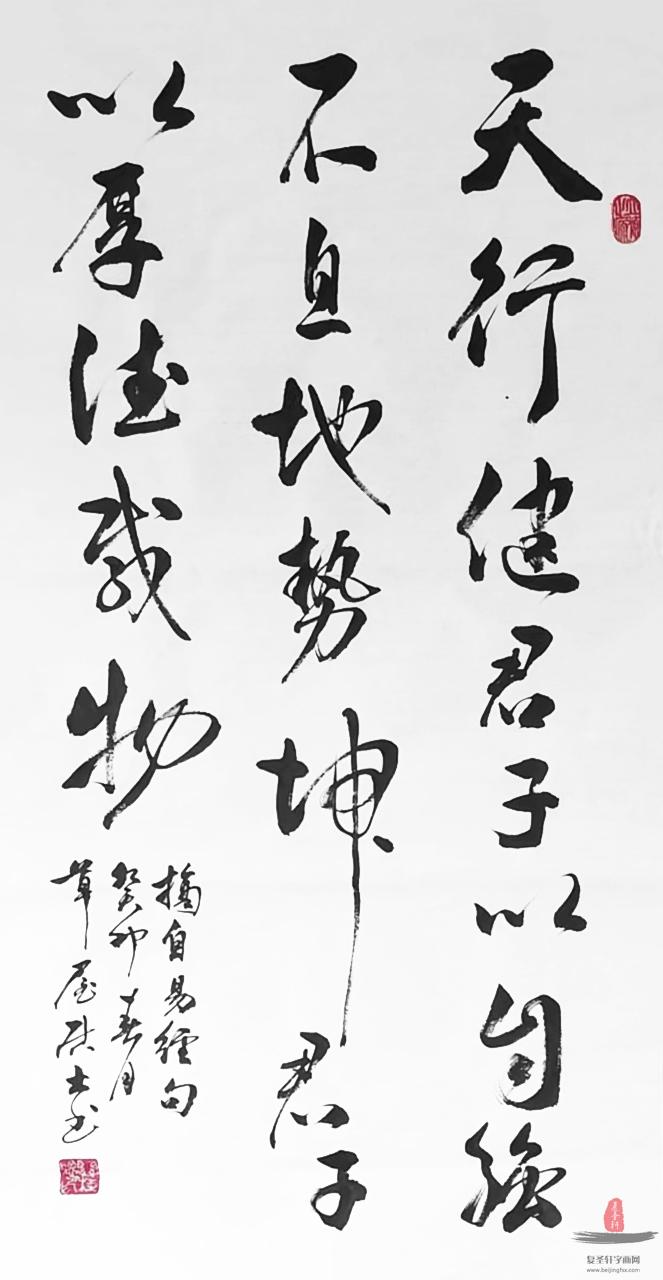 天行健君子以自強
不息地勢坤君子
以厚德载物
摘自易经句
癸卯春月
草屋居士书
复圣轩字画网
www.beijingfxx.com